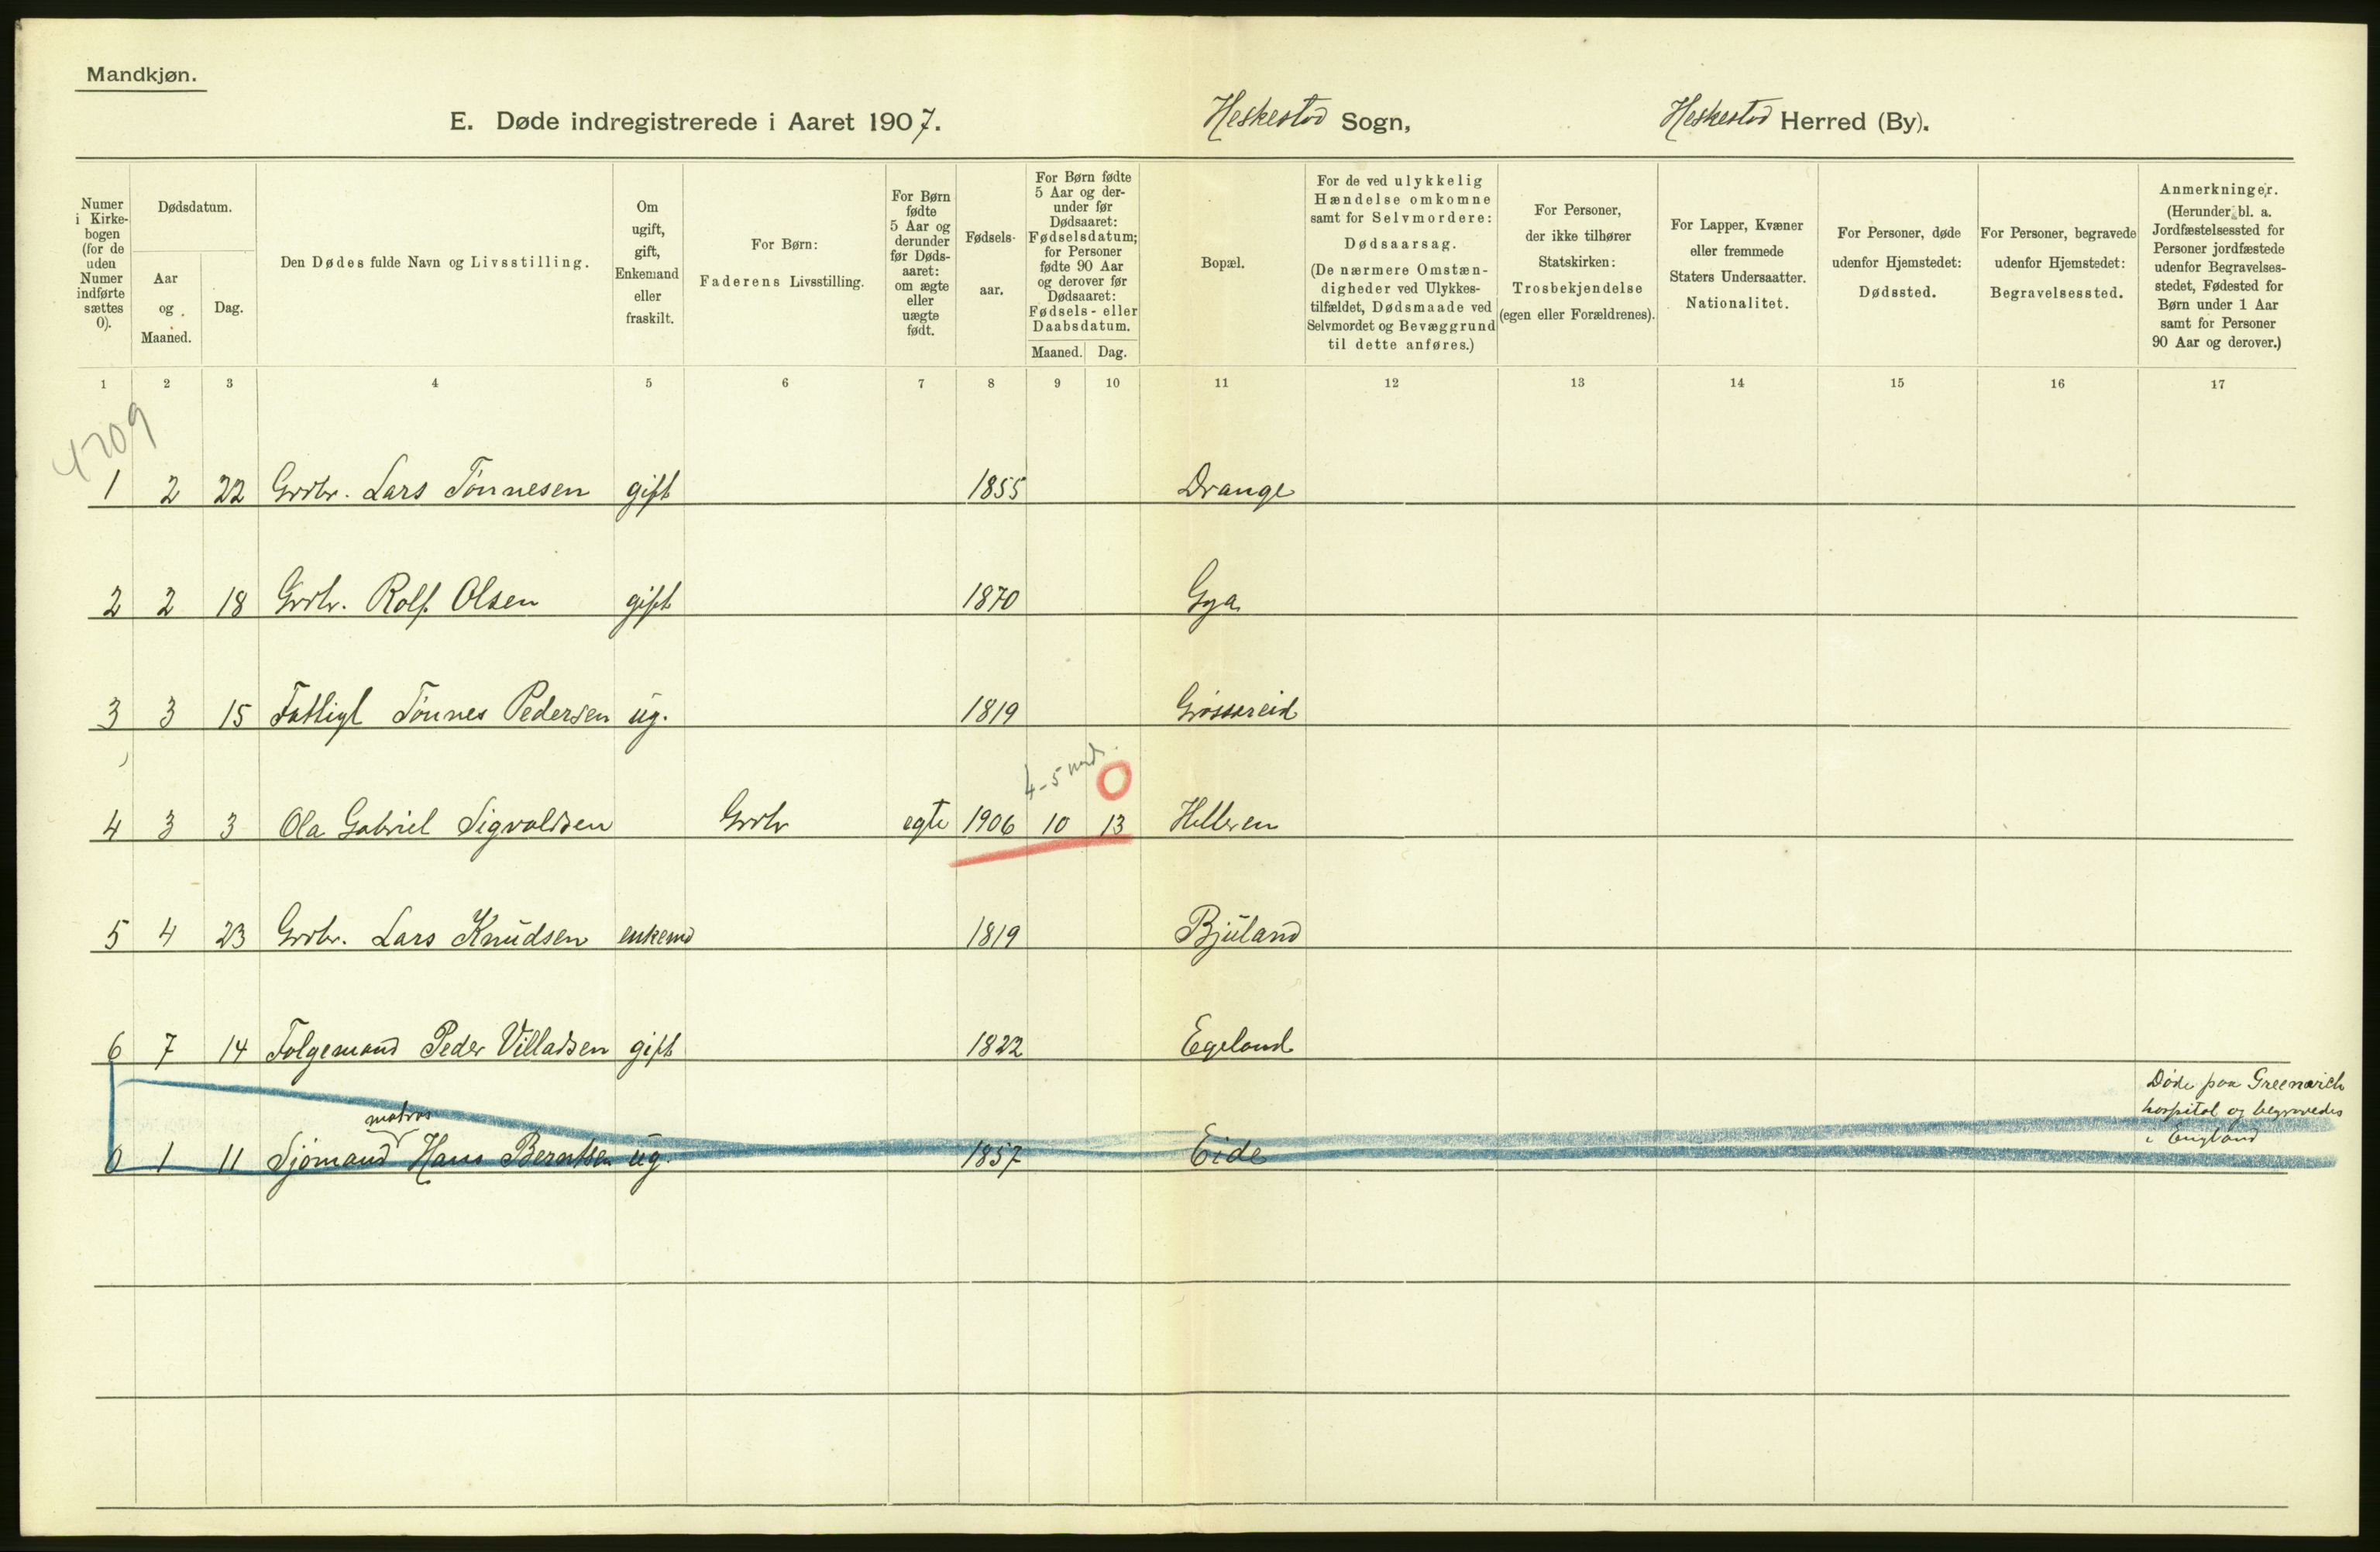 Mandkjøn.
E. Døde indregistrerede i Aaret 1907. Heskestad Sogn, Heskestad Herred (By).
Numer i Kirkebogen (for de uden Numer indførte sættes 0).
Dødsdatum.
Aar og Maaned.
Dag.
Den Dødes fulde Navn og Livsstilling.
Om ugift, gift, Enkemand eller fraskilt.
For Børn: Faderens Livsstilling.
For Børn fødte 5 Aar og derunder før Dødsaaret: om ægte eller uægte født.
Fødselsaar.
For Børn fødte 5 Aar og derunder før Dødsaaret: Fødselsdatum; for Personer fødte 90 Aar og derover før Dødsaaret: Fødsels- eller Daabsdatum.
Maaned. Dag.
Bopæl.
For de ved ulykkelig Hændelse omkomne samt for Selvmordere: Dødsaarsag. (De nærmere Omstændigheder ved Ulykkestilfældet, Dødsmaade ved Selvmordet og Bevæggrund til dette anføres.)
For Personer, der ikke tilhører Statskirken: Trosbekjendelse (egen eller Forældrenes).
For Lapper, Kvæner eller fremmede Staters Undersaatter. Nationalitet.
For Personer, døde udenfor Hjemstedet: Dødssted.
For Personer, begravede udenfor Hjemstedet: Begravelsessted.
Anmerkninger. (Herunder bl. a. Jordfæstelsessted for Personer jordfæstede udenfor Begravelsesstedet, Fødested for Børn under 1 Aar samt for Personer 90 Aar og derover.)
1 2 3 4 5 6 7 8 9 10 11 12 13 14 15 16 17
4209
1 2 22 Grdbr. Lars Tønnesen gift 1855 Drange
2 2 18 Grdbr. Rolf Olsen gift 1870 Gya
3 3 15 Fattigl Tønnes Pedersen ug. 1819
4-5 mnd. 0
4 3 3 Ola Gabriel Sigvaldsen Grdbr egte 1906 10 13 Helleren
5 4 23 Grdbr. Lars Knudsen enkemd 1819 Bjuland
6 7 14 Folgemand Peder Villadsen gift 1822 Egeland
Døde paa Greenwich
matros hospital og begravedes
0 1 11 Sjömand Hans Berntsen ug. 1857 Eide i England